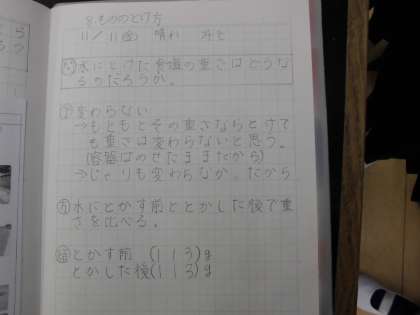 8.もののとけ方
11/11㊎ 晴れ
㋲水にとけた食塩の重さはどうな
るのだろうか。
㋵変わらない
→もともとその重さならとけて
も重さは変わらないと思う。
(容器はのせたままだから)
→じゃりも変わらなか。だから
㋭水にとかす前ととかした後で重
さを比べる。
㋘とかす前 (113)g
とかした後(113)g